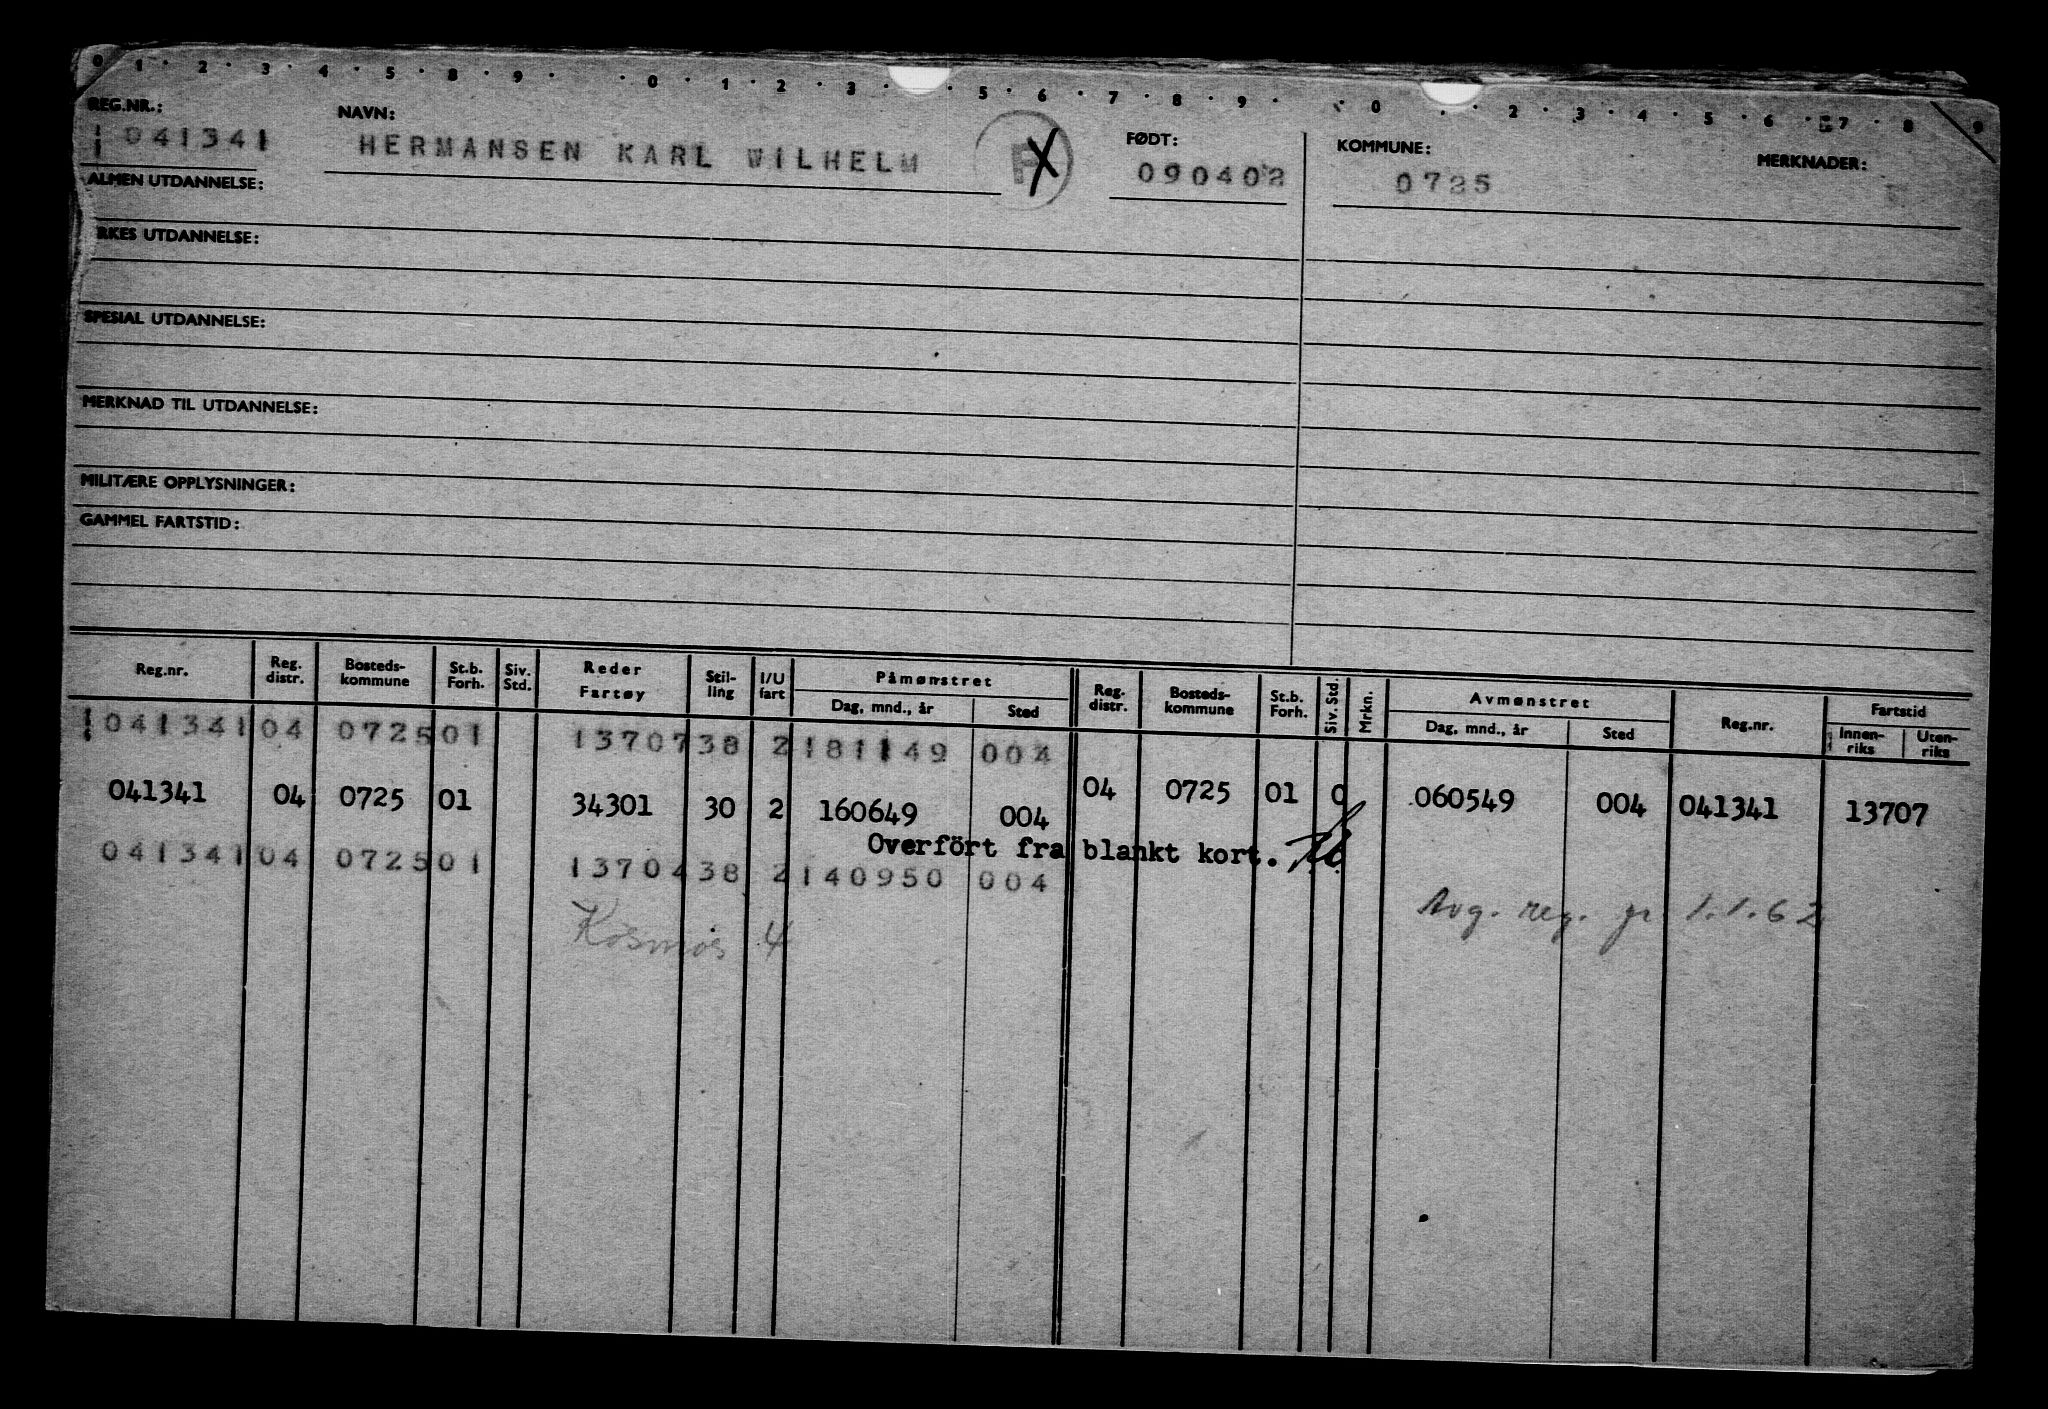 0 1 2 3 4 5 8 9 0 1 2 3 5 6 7 8 9 0 2 3 4 5 6 7 8 9
REG.NR.: NAVN: FØDT: KOMMUNE: MERKNADER:
041341 HERMANSEN KARL WILHELM 090402 0725
ALMEN UTDANNELSE:
RKES UTDANNELSE:
SPESIAL UTDANNELSE:
MERKNAD TIL UTDANNELSE:
MILITÆRE OPPLYSNINGER:
GAMMEL FARTSTID:
Reg.nr. Reg. distr. Bosteds- kommune St.b. Forh. Siv. Std. Reder Fartøy Stil- ling I/U fart Påmønstret Dag, mnd., år Sted Reg. distr. Bosteds- kommune St.b. Forh. Siv. Std. Mrkn. Avmønstret Dag, mnd., år Sted Reg.nr. Fartstid Innen- riks Uten- riks
041341 04 0725 01 13707 38 2 181149 004
041341 04 0725 01 34301 30 2 160649 004 04 0725 01 0 060549 004 041341 13707
Overfört fra blankt kort.
041341 04 0725 01 13704 38 2 140950 004
Kosmos 4 Avg. reg. pr 1.1.62